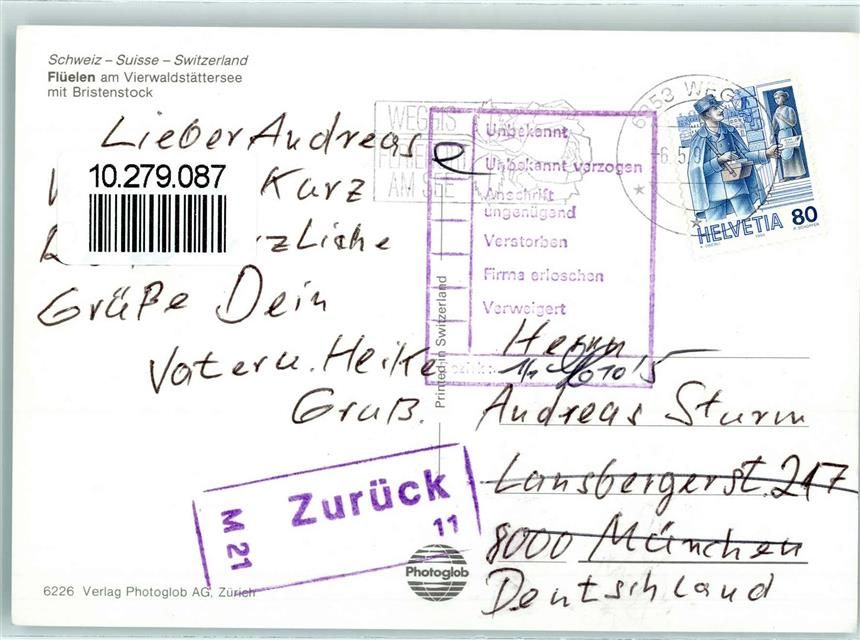 Schweiz – Suisse – Switzerland
Flüelen am Vierwaldstättersee
mit Bristenstock
Lieber Andreas
10.279.087
Kurz
rzliche
Grüße Dein
Vater u. Heike
Gruß.
WEGGIS
AM SEE
6353 WEGG
6.5.9
HELVETIA 80
Unbekannt
Unbekannt verzogen
Anschrift
ungenügend
Verstorben
Firma erloschen
Verweigert
Printed in Switzerland
Herrn
Andreas Sturm
Lansbergerst. 217
8000 München
Deutschland
Zurück
M 21
11
Photoglob
6226 Verlag Photoglob AG, Zürich